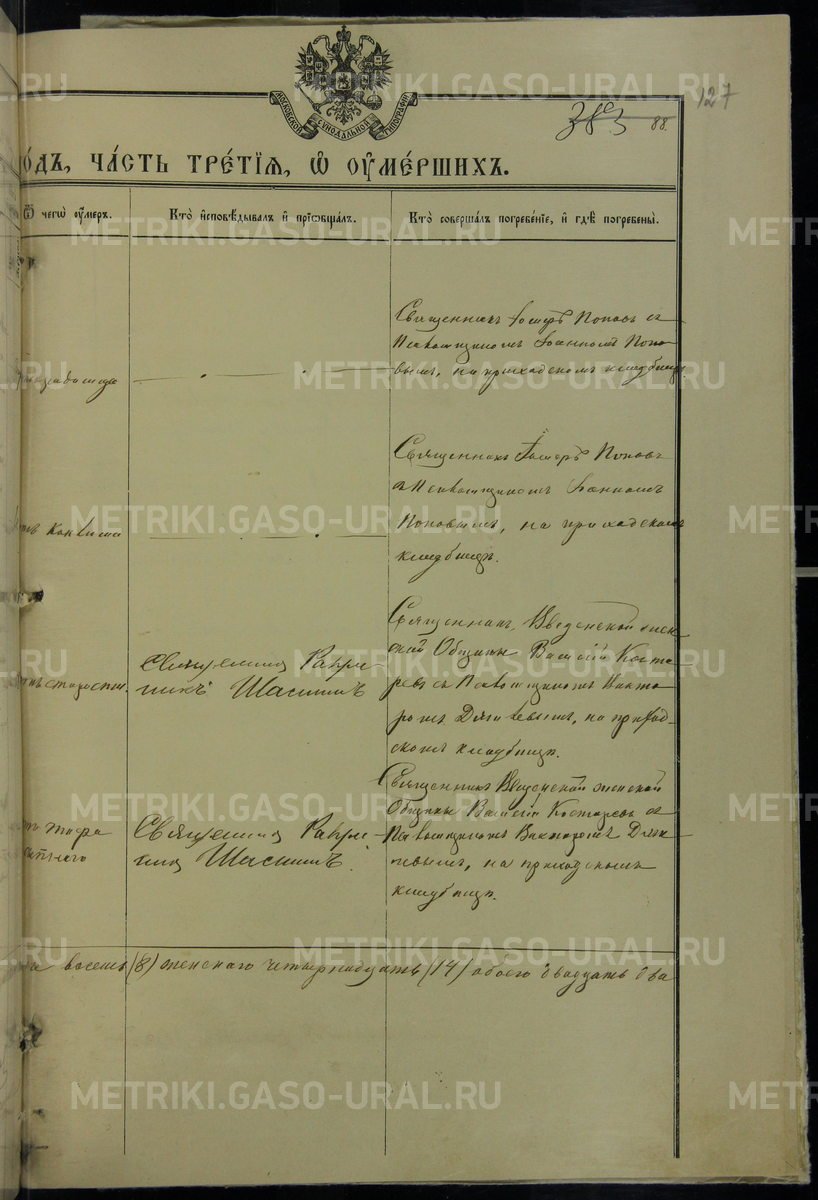 МОСКОВСКОЙ СѴНОДАЛЬНОЙ ТИПОГРАФІИ
127
383 88.
о́дъ, ча́сть тре́тїѧ, ѡ҆ ᲂу҆ме́ршихъ.
Ѿ чегѡ̀ ᲂу҆́меръ.
Кто̀ и҆сповѣ́дывалъ и҆ прїѡбща́лъ.
Кто̀ соверша́лъ погребе́нїе, и҆ гдѣ̀ погребены̀.
Священникъ Іосифъ Поповъ съ
Псаломщикомъ Іоанномъ Попо-
вымъ, на приходскомъ кладбищѣ.
Священникъ Іосифъ Поповъ
съ Псаломщикомъ Іоанномъ
Поповымъ, на приходскомъ
кладбищѣ.
старости.
Священникъ
Шасшинъ
Священникъ Введенской жен-
ской Общины Василій Косты-
ревъ съ Псаломщикомъ Викто-
ромъ на приход-
скомъ кладбищѣ.
Священникъ Введенской женской
Общины Василій Костыревъ съ
Псаломщикомъ Викторомъ
на приходскомъ
кладбищѣ.
тифа
восемь (8) женскаго четырнадцать (14) обоего двадцать два
METRIKI.GASO-URAL.RU